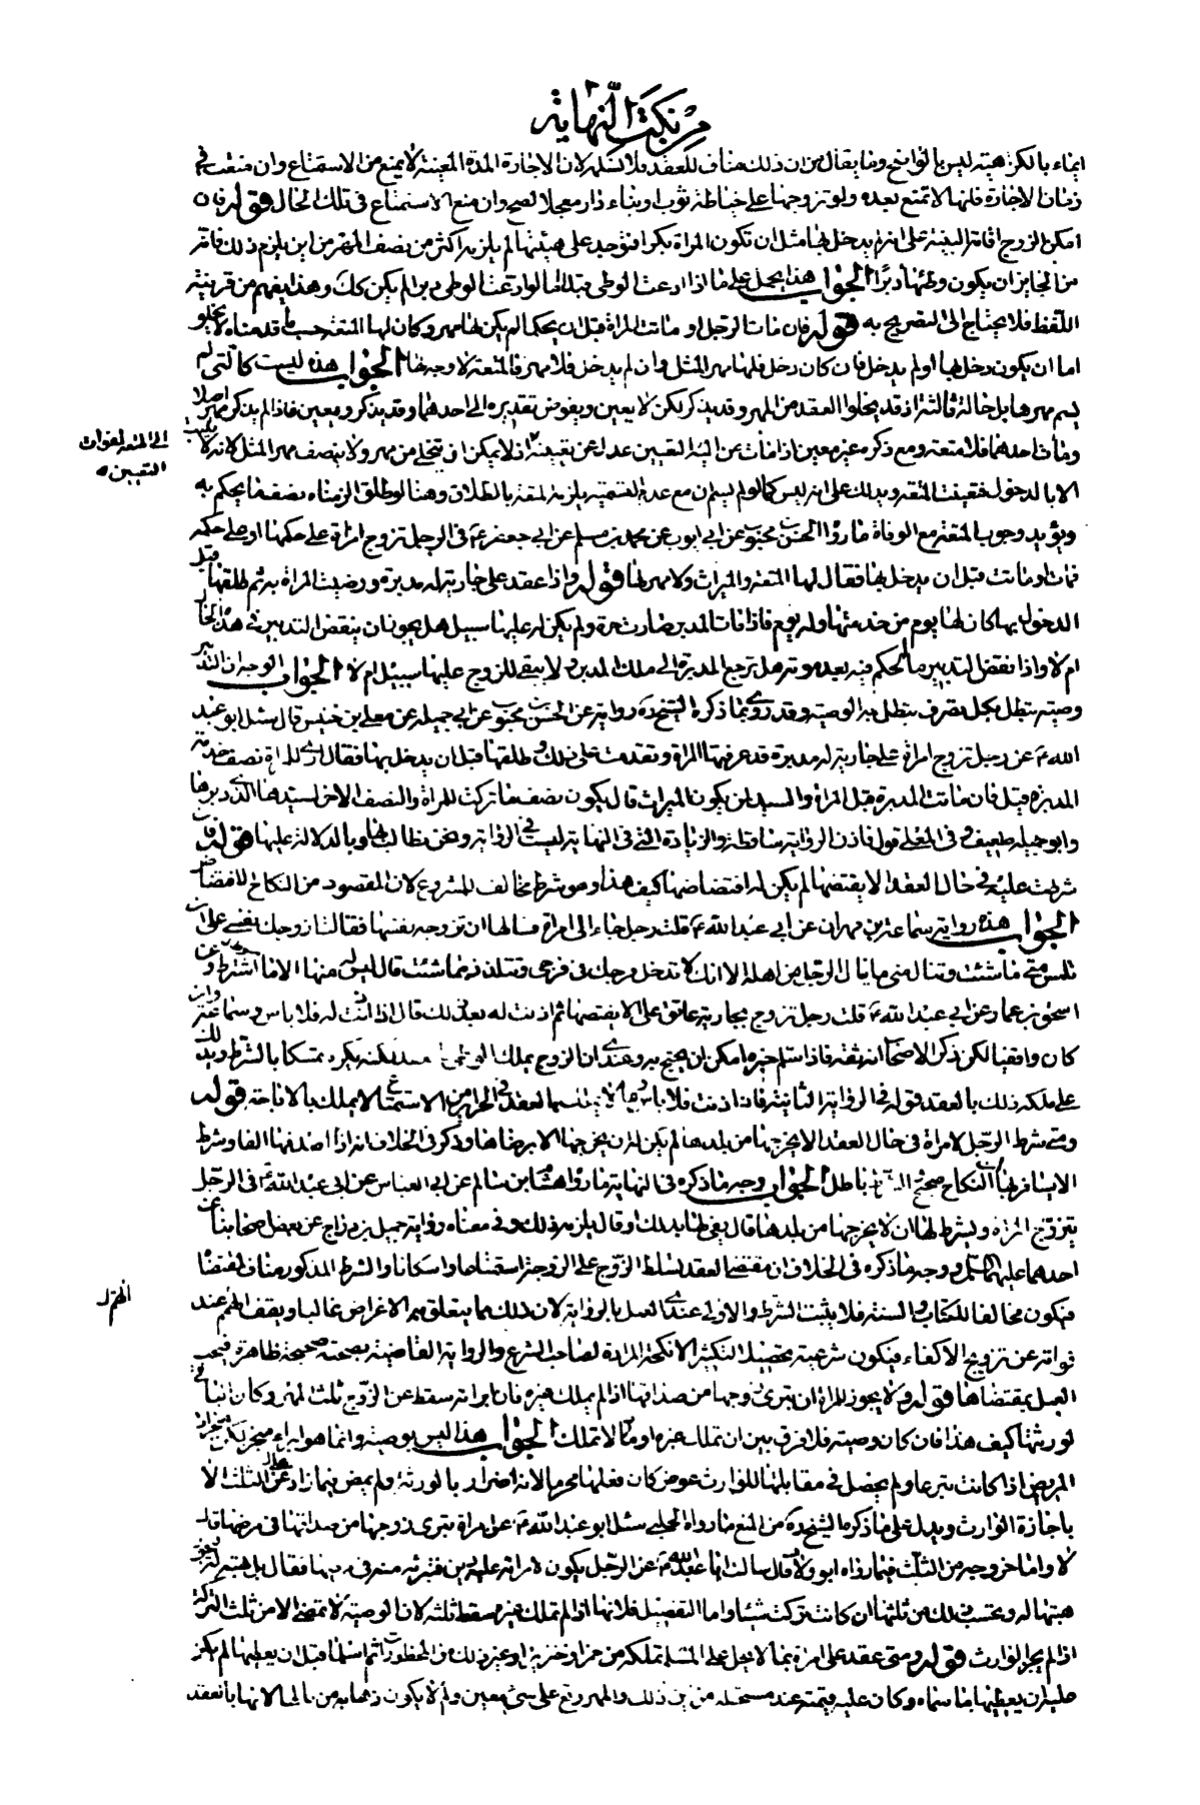 من نكت النهاية
ايماء بالكراهية ليس بالواضح وما يقال من ان ذلك مناف للعقد فلا نسلم لان الاجارة المدة المعينة لا يمنع من الاستمتاع وان منعت في
زمان الاجارة فانها لا تمنع بعده ولو تزوجها على خياطة ثوب او بناء دار معجلا لصح وان منع الاستمتاع في تلك الحال قوله فان
امكن الزوج اقامة البينة على انه لم يدخل بها مثل ان تكون المراة بكرا فتوجد على هيئتها لم يلزمه اكثر من نصف المهر من اين يلزم ذلك فانه
من الجايز ان يكون وطئها دبرا الجواب هذا يحمل على ما اذا ادعت الوطي قبلا اما لو ادعت الوطي دبرا لم يكن كك وهذا يفهم من قرينة
اللفظ فلا يحتاج الى التصريح به قوله فان مات الرجل او ماتت المراة قبل ان يحكما لم يكن لها مهر وكان لها المتعة حسب ما قدمناه لا يخلو
اما ان يكون دخل بها او لم يدخل فان كان دخل فلها مهر المثل وان لم يدخل فلا مهر فالمتعة لا وجه لها الجواب هذه ليست كالتي لم
يسم مهرها بل حالة ثالثة اذ قد يخلوا العقد من المهر وقد يذكر لكن لا يعين ويفوض تقديره الى احدهما وقد يذكر ويعين فاذا لم يذكر مهر اصلا
ومات احدهما فلا متعة ومع ذكره غير معين اذا مات من اليه التعيين عدل عن تعيينه اذ لا يمكن ان تخلى من مهر ولا ينصف مهر المثل لانه لا يجب
الى المتعة لفوات
التعيين
الا بالدخول فتعينت المتعة ويدلك على انه ليس كما لو لم يسم ان مع عدم التسمية يلزمه المتعة بالطلاق وهنا لو طلق الزمناه بنصف ما يحكم به
ويؤيد وجوب المتعة مع الوفاة ما رواه الحسن بن محبوب عن ابي ايوب عن محمد بن مسلم عن ابي جعفر ع في الرجل تزوج امراة على حكمها او على حكمه
فمات او ماتت قبل ان يدخل بها فقال لها المتعة والميراث ولا مهر لها قوله واذا عقد على جارية له مدبرة ورضيت المراة به ثم طلقها قبل
الدخول بها كان لها يوم من خدمتها وله يوم فاذا مات المدبر صارت حرة ولم يكن له عليها سبيل هل يجوز ان ينقض التدبير في هذه الحال
ام لا واذا نقض التدبير ما الحكم فيه بعد موته هل ترجع المدبرة الى ملك المدبر ولا يبقى للزوج عليها سبيل ام لا الجواب الوجه ان التدبير
وصية تبطل بكل تصرف يبطل به الوصية وقد روى ما ذكره الشيخ ره رواية عن الحسن بن محبوب عن ابي جميلة عن معلى بن خنيس قال سئل ابو عبد
الله ع عن رجل تزوج امراة على جارية له مدبرة قد عرفتها المراة وتقدمت على ذلك وطلقها قبل ان يدخل بها فقال ارى للمراة نصف خدمة
المدبرة قيل فان ماتت المدبرة قبل المراة والسيد لمن يكون الميراث قال يكون نصف ما تركت للمراة والنصف الاخر لسيدها الذي دبرها
وابو جميلة ضعيف وفي المعلى قول فاذن الرواية ساقطة والزيادة التي في النهاية ليست في الرواية ونحن نطالب بها وبالدلالة عليها قوله فان
شرطت عليه في حال العقد الا يقتضها لم يكن له اقتضاضها كيف هذا وهو شرط مخالف للمشروع لان المقصود من النكاح الاقتضاض
الجواب هذه رواية سماعة بن مهران عن ابي عبد الله ع قلت رجل جاء الى امراة فسالها ان تزوجه نفسها فقالت ازوجك نفسي على ان
تلمس مني ما شئت وتنال مني ما ينال الرجل من اهله الا انك لا تدخل فرجك في فرجي وتتلذذ بما شئت قال ليس له منها الا ما اشترط وعن
اسحق بن عمار عن ابي عبد الله ع قلت رجل تزوج بجارية عاتق على الا يقتضها ثم اذنت له بعد ذلك قال اذا اذنت له فلا باس وسماعة وان
كان واقفيا لكن ذكر الاصحاب انه ثقة فاذا سلم خبره امكن ان يحتج به وعندي ان الزوج يملك الوطي بالعقد لكنه يكره تمسكا بالشرط ويدلك
على ملكه ذلك بالعقد قوله في الرواية الثانية فاذا اذنت فلا باس لانه لو لم يملك بالعقد في الحراير من الاستمتاع لا يملك بالاباحة قوله
ومتى شرط الرجل لامراة في حال العقد الا يخرجها من بلدها لم يكن له ان يخرجها الا برضاها وذكر في الخلاف انه اذا اصدقها الفا وشرط
الا يسافر بها ان النكاح صحيح والشرط باطل الجواب وجه ما ذكره في النهاية ما رواه هشام بن سالم عن ابي العباس عن ابي عبد الله ع في الرجل
يتزوج المراة ويشرط لها ان لا يخرجها من بلدها قال يفي لها بذلك او قال يلزمه ذلك وفي معناه رواية جميل بن دراج عن بعض اصحابنا عن
احدهما عليهما السلام ووجه ما ذكره في الخلاف ان مقتضى العقد تسلط الزوج على الزوجة استمتاعا واسكانا والشرط المذكور مناف لمقتضاه
فيكون مخالفا للكتاب والسنة فلا يثبت الشرط والاولى عندي العمل بالرواية لان ذلك مما يتعلق به الاغراض غالبا ويقف الهم عند
الهم لـ
فواته عن تزويج الاكفاء فيكون شرعيته تحصيلا لتكثير الانكحة المرادة لصاحب الشرع والرواية القاضية بصحته صحيحة ظاهرة فيجب
العمل بمقتضاها قوله ولا يجوز للمراة ان تبرئ زوجها من صداقها اذا لم يملك غيره فان ابراته سقط عن الزوج ثلث المهر وكان الباقي
لورثتها كيف هذا فان كان وصية فلا فرق بين ان تملك غيره او لا تملك الجواب هذا ليس بوصية وانما هو ابراء منجز لكن منجزات
المريض اذا كانت تبرعا ولم يحصل في مقابلتها للوارث عوض كان فعلها محرما لانه اضرار بالورثة ولم يمض فيما زاد عن الثلث الا
باجازة الوارث ويدل على ما ذكره الشيخ ره من المنع ما رواه الحلبي سئل ابو عبد الله ع عن امراة تبرئ زوجها من صداقها في مرضها قال
لا واما خروجه من الثلث فيما رواه ابو ولاد قال سالت ابا عبد الله ع عن الرجل يكون لامراته عليه دين فتبرئه منه في مرضها فقال بل تهبه له فتجوز
هبتها له ويحتسب ذلك من ثلثها ان كانت تركت شيئا واما التفصيل فلانها اذا لم تملك غيره سقط ثلثه لان الوصية لا تمضي الا من ثلث التركة
اذا لم يجز الوارث قوله ومتى عقد على امراة بما لا يحل على المسلم تملكه من خمر او خنزير او غير ذلك من المحظورات ثم اسلما قبل ان يعطيها لم يكن
عليه ان يعطيها ما سماه وكان عليه قيمته عند مستحله من ذلك والمهر وقع على شيء معين ولم لا يكون ذهابه من مالها لانها بالعقد